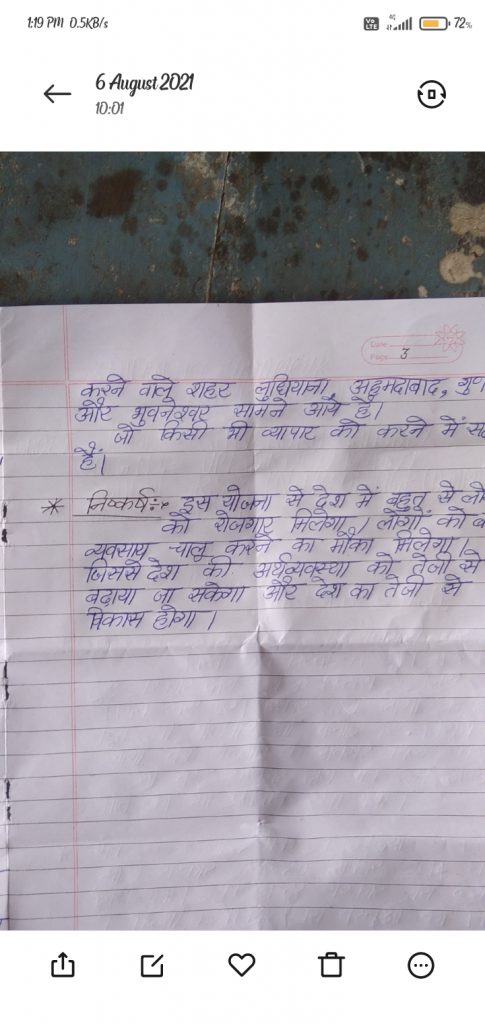 1:19 PM 0.5KB/s
Vo LTE 4G 72%
6 August 2021
10:01
Date
Page 3
करने वाले शहर लुधियाना, अहमदाबाद,
और भुवनेश्वर सामने आये है।
जो किसी भी व्यापार को करने में
हैं।
* निष्कर्ष:- इस योजना से देश में बहुत से
को रोजगार मिलेगा। लोगों को
व्यवसाय चालू करने का मौका मिलेगा।
जिससे देश की अर्थव्यवस्था को तेजी से
बढ़ाया जा सकेगा और देश का तेजी से
विकास होगा।